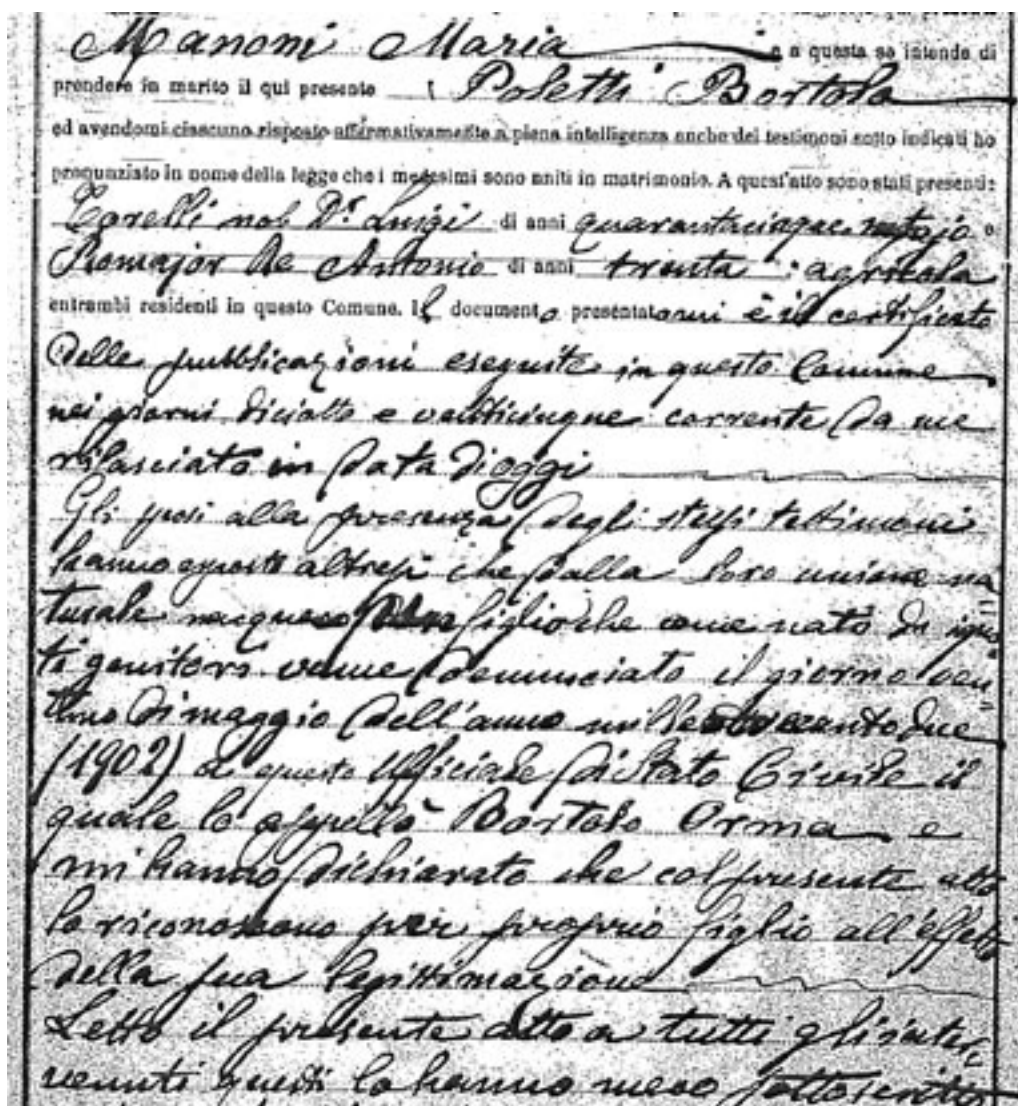 Manoni Maria e a questa se intende di
prendere in marito il qui presente Poletti Bortolo
ed avendomi ciascuno risposto affermativamente a piena intelligenza anche dei testimoni sotto indicati ho
pronunziato in nome della legge che i medesimi sono uniti in matrimonio. A quest'atto sono stati presenti:
Torelli nob Dr Luigi di anni quarantacinque notajo e
De Antonio di anni trenta agricola
entrambi residenti in questo Comune. Il documento presentatomi è il certificato
delle pubblicazioni eseguite in questo Comune
nei giorni diciotto e venticinque corrente da me
rilasciato in data di oggi
Gli sposi alla presenza degli stessi testimoni
hanno esposto altresì che dalla loro unione na
turale nacque un figlio che come nato da igno
ti genitori venne denunciato il giorno ven
tuno di maggio dell'anno millenovecentodue
(1902) a questo Ufficiale di Stato Civile il
quale lo appellò Bortolo Orma e
mi hanno dichiarato che col presente atto
lo riconoscono per proprio figlio all'effetto
della sua legittimazione
Letto il presente atto a tutti gli inter
venuti questi lo hanno meco sottoscritto